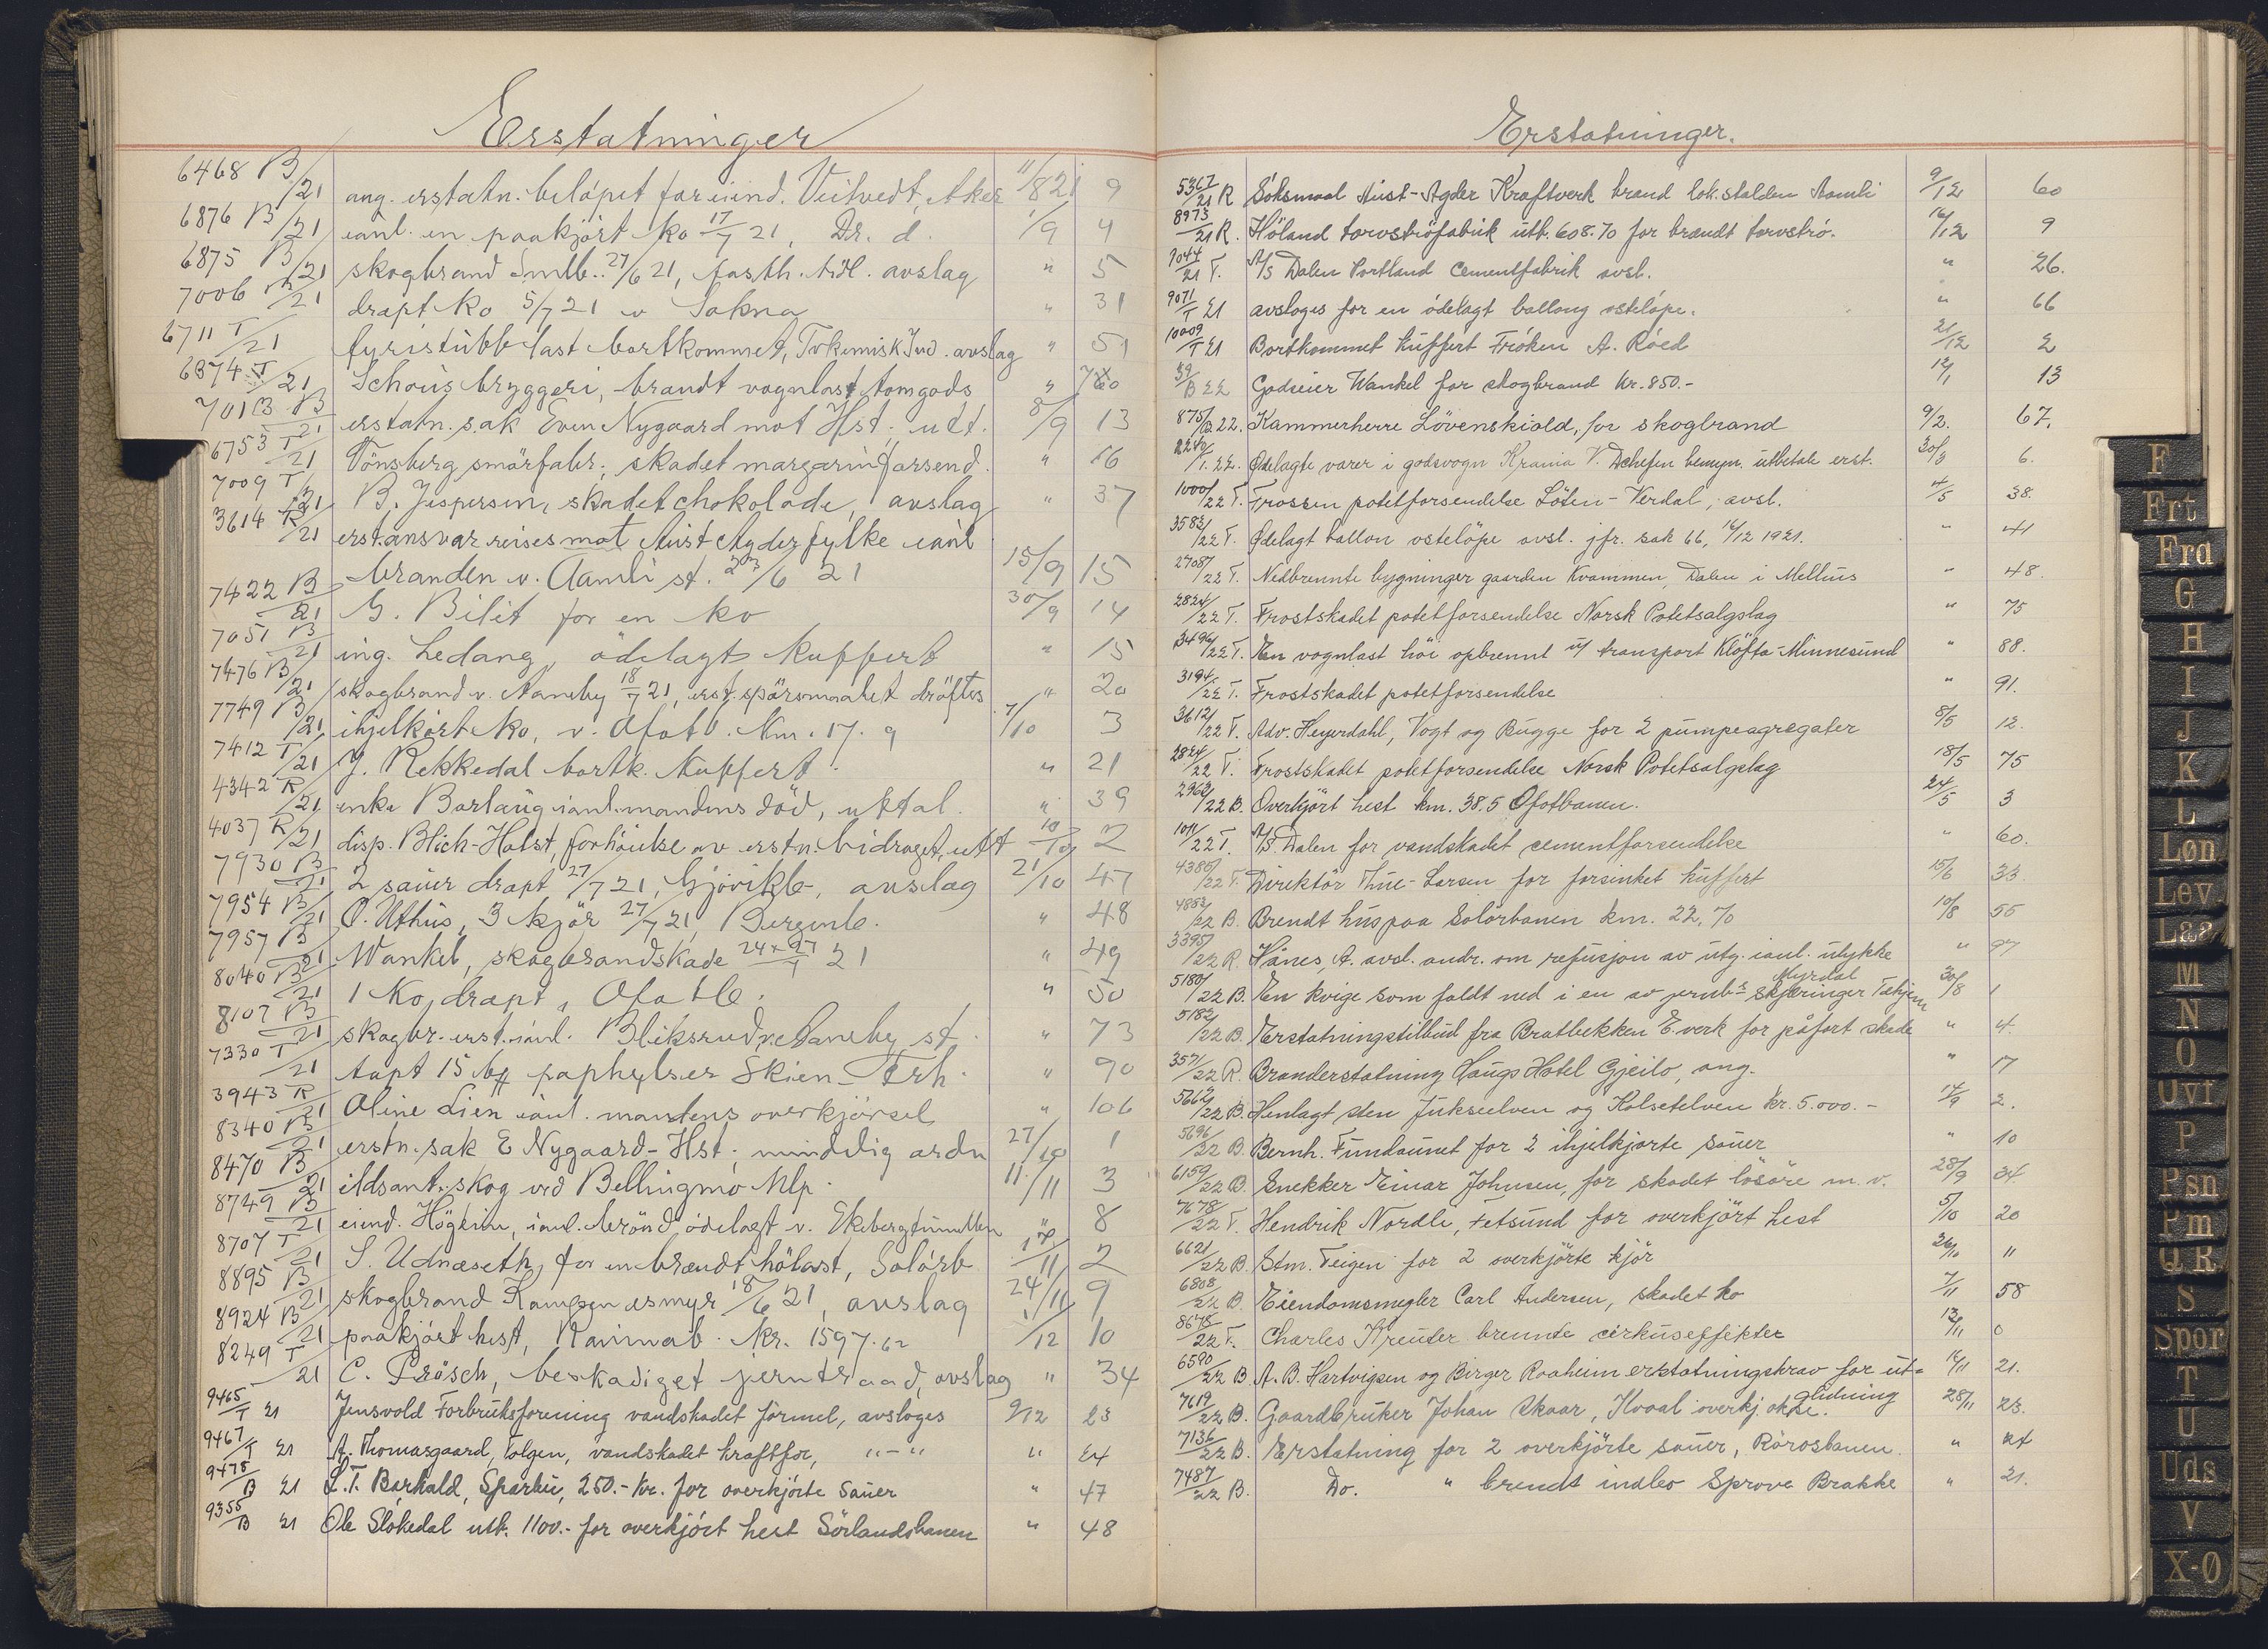 Erstatninger
6468 B/21 ang. erstatn. beløpet for eiend. Veitvedt, Aker 11/8 21 9
6876 B/21 ianl. en paakjørt ko 17/7 21, Dr. d. 1/9 4
6875 B/21 skogbrand Smlb. 27/6 21, fasth. tidl. avslag " 5
7006 B/21 drapt ko 5/7 21 v Sokna " 31
6711 T/21 fyristubblast bortkommet, Tvkemisk Ind. avslag " 51
6874 T/21 Schous bryggeri, brandt vognlast tomgods " 60
7018 B/21 erstatn. sak Even Nygaard mot Hst; utt. 8/9 13
6753 T/21 Tönsberg smörfabr; skadet margarinforsend. " 16
7009 T/21 B. Jespersen, skadet chokolade, avslag " 37
3614 R/21 erst.ansvar reises mot Aust Agder fylke ianl
branden v. Aamli st. 23/6 21 15/9 15
7422 B/21 G. Bilit for en ko 30/9 14
7051 B/21 ing. Ledang, ödelagt kuffert " 15
7476 B/21 skogbrand v. Aaneby 18/7 21, erst.spörsmaalet dröftes " 20
7749 B/21 ihjelkört ko, v. Ofotb. Km. 17.9 7/10 3
7412 T/21 J. Rekkedal bortk. kuffert. " 21
4342 R/21 enke Borlaug ianl. mandens död, uttal. " 39
4037 R/21 disp. Blich-Holst, forhöielse av erstn. bidraget, utt 10/10 2
7930 B/21 2 sauer drapt 27/7 21, Gjövikb., avslag 21/10 47
7954 B/21 O. Uthus, 3 kjör 27/7 21, Bergensb. " 48
7957 B/21 Wankel, skogbrandskade 24 x 27/7 21 " 49
8040 B/21 1 Ko, drapt, Ofotb. " 50
8107 B/21 skogbr. erst. ianl. Bliksrud v. Aaneby st. " 73
7330 T/21 tapt 15 bt paphylser Skien-Trh. " 90
3943 R/21 Oline Lien ianl. mandens overkjörsel " 106
8340 B/21 erstn. sak E Nygaard-Hst; mindelig ordn 27/10 1
8470 B/21 ildsant. skog ved Bellingmo Mlp. 11/11 3
8749 B/21 eiend. Högheim, ianl. brönd ödelagt v. Ekebergtunnellen " 8
8707 T/21 S. Udnæseth, for en brændt hölast, Solörb 17/11 2
8895 B/21 skogbrand Kampesæsmyr 18/6 21, avslag 24/11 9
8924 B/21 paakjört hest, Raumab. Kr. 1597.62 1/12 10
8249 T/21 C. Prösch, beskadiget jerntraad, avslag " 34
9465/T 21 Jensvold Forbruksforening vandskadet förmel, avsloges 9/12 23
9467/T 21 A. Thomasgaard, Tolgen, vandskadet kraftfor, "-" " 24
9475/B 21 L.T. Barkald, Sparbu, 250.- kr. for overkjörte sauer " 47
9355/B 21 Ole Slökedal utb. 1100.- for overkjört hest Sörlandsbanen " 48
Erstatninger.
5367/21 R Söksmaal Aust-Agder Kraftverk brand lok.stalden Aamli 9/12 60
8973/21 R. Höland torvströfabrik utb. 608.70 for brændt torvströ. 16/12 9
7044/21 T. A/S Dalen Portland Cementfabrik avsl. " 26.
9071/T 21 avsloges for en ödelagt ballong osteløpe. " 66
10009/T 21 Bortkommet kuffert Fröken A. Röed 21/12 2
39/B 22 Godseier Wankel for skogbrand Kr. 850.- 12/1 13
875/B 22. Kammerherre Lövenskiold, for skogbrand 9/2. 67.
2242/T. 22. Ødelagte varer i godsvogn Krania V. Dchefen bemyn. utbetale erst. 30/3 6.
1000/22 T. Frossen potetforsendelse Löten-Verdal, avsl. 4/5 38.
3583/22 T. Ødelagt ballon osteløpe avsl. jfr. sak 66, 16/12 1921. " 41
2708/22 T. Nedbrennte bygninger gaarden Kvammen, Dalen i Melhus " 48.
2824/22 T. Frostskadet potetforsendelse Norsk Potetsalgslag " 75
3496/22 T. En vognlast höi opbrennt u/ transport Klöfta-Minnesund " 88.
3194/22 T. Frostskadet potetforsendelse " 91.
3612/22 T. Adv. Heyerdahl, Vogt og Bugge for 2 pumpeagregater 8/5 12.
2824/22 T. Frostskadet potetforsendelse Norsk Potetsalgslag 18/5 75
2963/22 B. Overkjört hest km. 38.5 Ofotbanen. 24/5 3
1011/22 T. A/S. Dalen for vandskadet cementforsendelse " 60.
4386/22 T. Direktör Thue-Larsen for forsinket kuffert 15/6 33.
4853/22 B. Brendt hus paa Solörbanen km. 22,70 10/8 55
3395/22 R. Hanes, A. avsl. andr. om refusjon av utg. ianl. ulykke " 97
5180/22 B. En kvige som faldt ned i en av jernb.s skjæringer Myrdal Tøkjem 30/8 1
5182/22 B. Erstatningstilbud fra Bratbekken E.verk for påført skade " 4.
3571/22 R. Branderstatning Haugs Hotel Gjeilo, ang. " 17
5662/22 B. Henlagt sten Jukseelven og Kolsetelven kr. 5.000.- 14/9 2.
5696/22 B. Bernh. Fundaunet for 2 ihjelkjørte sauer " 10
6159/22 B. Snekker Einar Johnsen, for skadet lösöre m.v. 28/9 34
7678/22 T. Hendrik Nordli, Fetsund for overkjört hest 5/10 20
6621/22 B. Stm. Teigen for 2 overkjörte kjör 26/10 11
6808/22 B. Eiendomsmegler Carl Andersen, skadet ko 7/11 58
8678/22 T. Charles Kreuter brennte cirkuseffekter 13/11 0
6590/22 B. A. B. Hartvigsen og Birger Raaheim erstatningskrav for ut- 16/11 21.
glidning
7619/22 B. Gaardbruker Johan Skaar, Kvaal overkj. okse. 28/11 23.
7136/22 B. Erstatning for 2 overkjörte sauer, Rörosbanen. " 24
7487/22 B. Do. " brendt indbo Sprova Brakke " 21.
F
Frt
Frd
G
H
I
J
K
L
Løn
Lev
Laa
M
N
O
Ovf
P
Psn
Pm
Q R
S
Spor
T
U
Uds
V
X-Ø